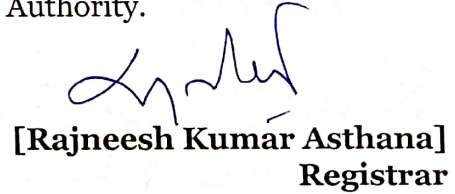 Authority.
[Rajneesh Kumar Asthana]
Registrar